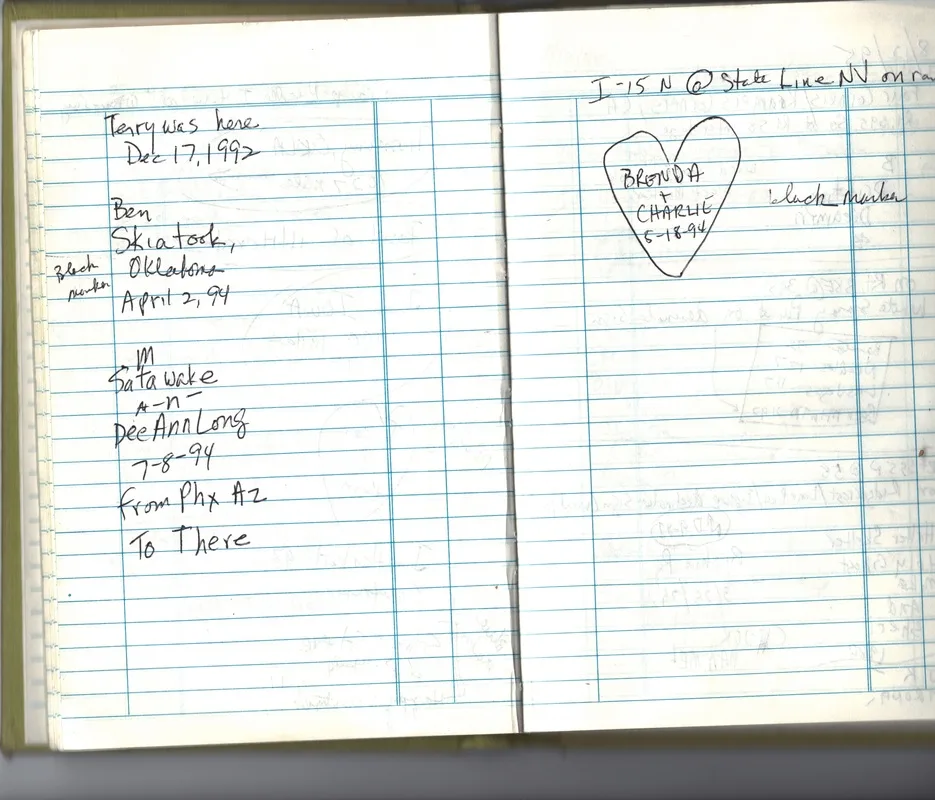 Terry was here
Dec 17, 1992
Ben
Skiatook,
Oklahoma
Black
marker
April 2, 94
m
Sata wake
A-n-
Dee Ann Long
7-8-94
from Phx Az
To There
I-15 N @ State Line NV on ra
BRENDA
+
CHARLIE
5-18-94
black marker